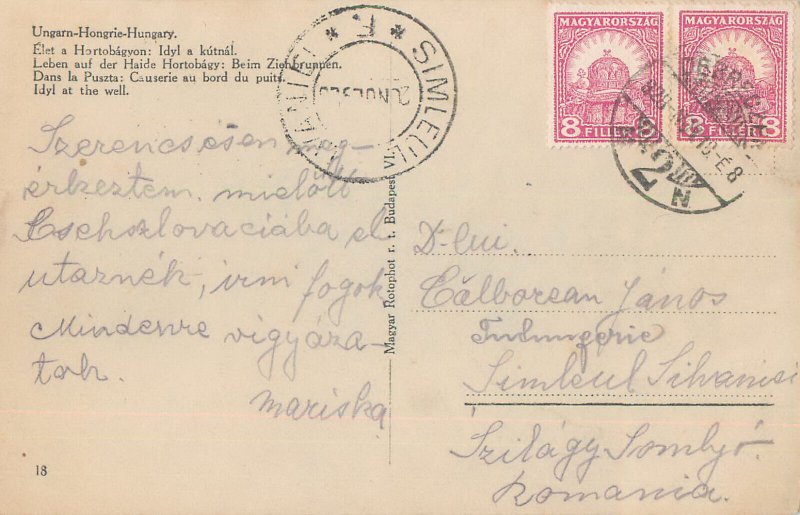 Ungarn-Hongrie-Hungary.
Élet a Hortobágyon: Idyl a kútnál.
Leben auf der Haide Hortobágy: Beim Ziehbrunnen.
Dans la Puszta: Causerie au bord du puits.
Idyl at the well.
Szerencsésen meg-
érkeztem. mielött
Csehszlovaciába el
utaznék, irni fogok
Mindenre vigyáza-
tok.
Mariska
18
Magyar Rotophot r. t. Budapest VI.
MAGYARORSZÁG
8 FILLÉR
MAGYARORSZÁG
8 FILLÉR
ȘIMLEUL
* F. *
D-lui.
Călborean János
Simleul Silvaniei
Szilágy Somlyó.
Romania.